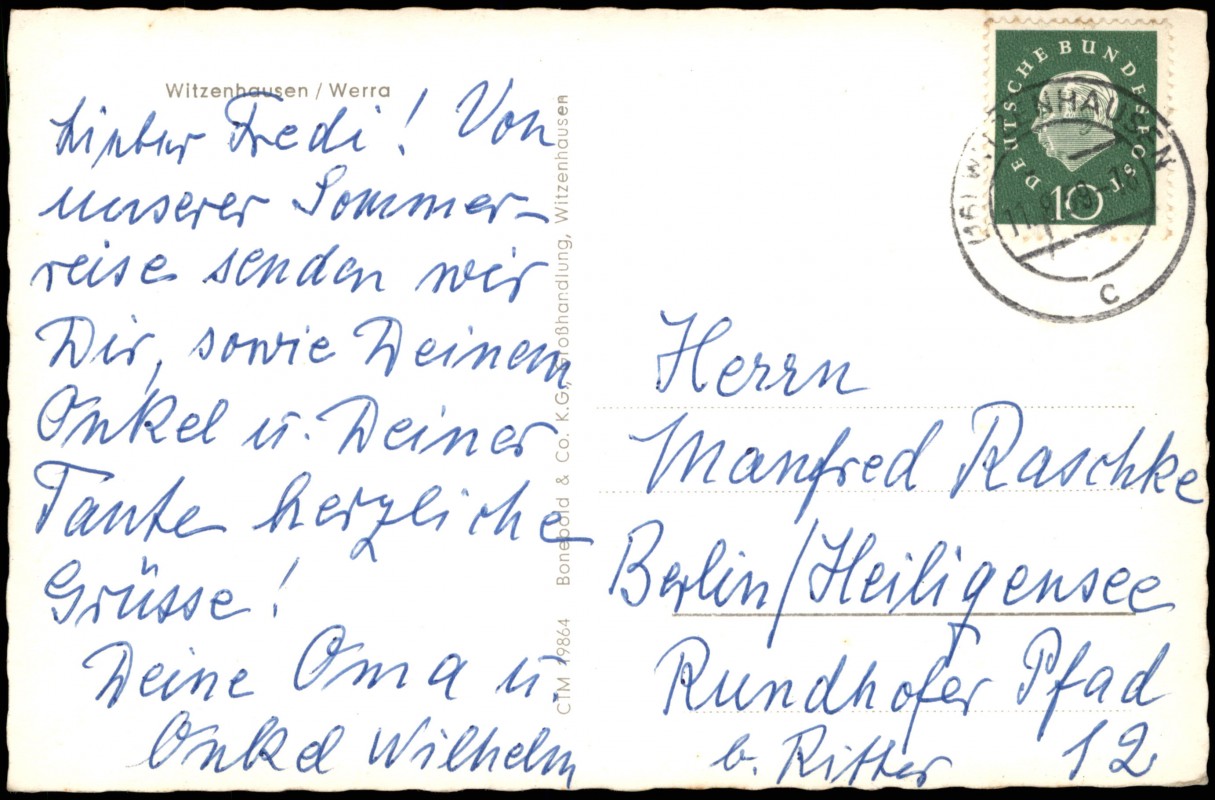 Witzenhausen / Werra
Lieber Fredi! Von
unserer Sommer-
reise senden wir
Dir, sowie Deinem
Onkel u. Deiner
Tante herzliche
Grüsse!
Deine Oma u.
Onkel Wilhelm
CTM 19864 Bonebold & Co. K.G., Großhandlung, Witzenhausen
DEUTSCHE BUNDESPOST
10
WITZENHAUSEN
C
Herrn
Manfred Raschke
Berlin/Heiligensee
Rundhofer Pfad
b. Ritter 12